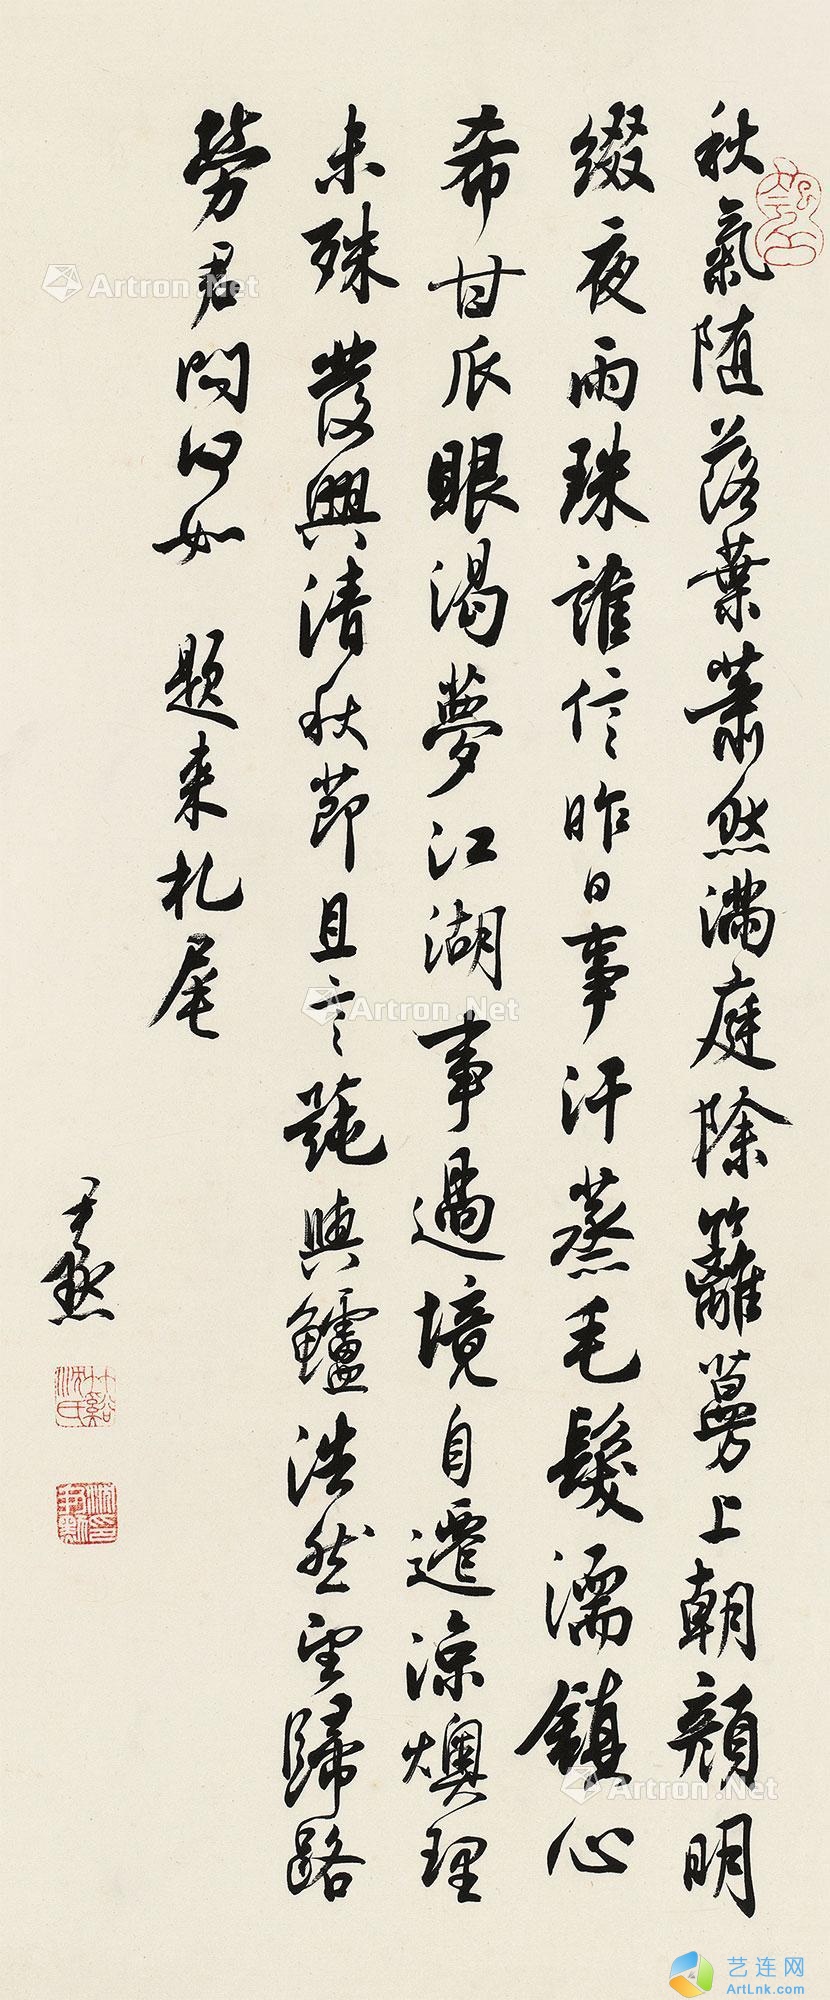 秋氣随落葉蕭然滿庭除籬蔓上朝顏明
綴夜雨珠誰信昨日事汗蒸毛髮濡鎮心
希甘瓜眼渴夢江湖事過境自遷涼燠理
未殊發興清秋節且言蒓與鱸浩然望歸路
勞君問何如 題来札尾
尹默
竹谿沈氏
沈尹默印
Artron.Net
Artron.Net
Artron.Net
艺连网
ArtLnk.com